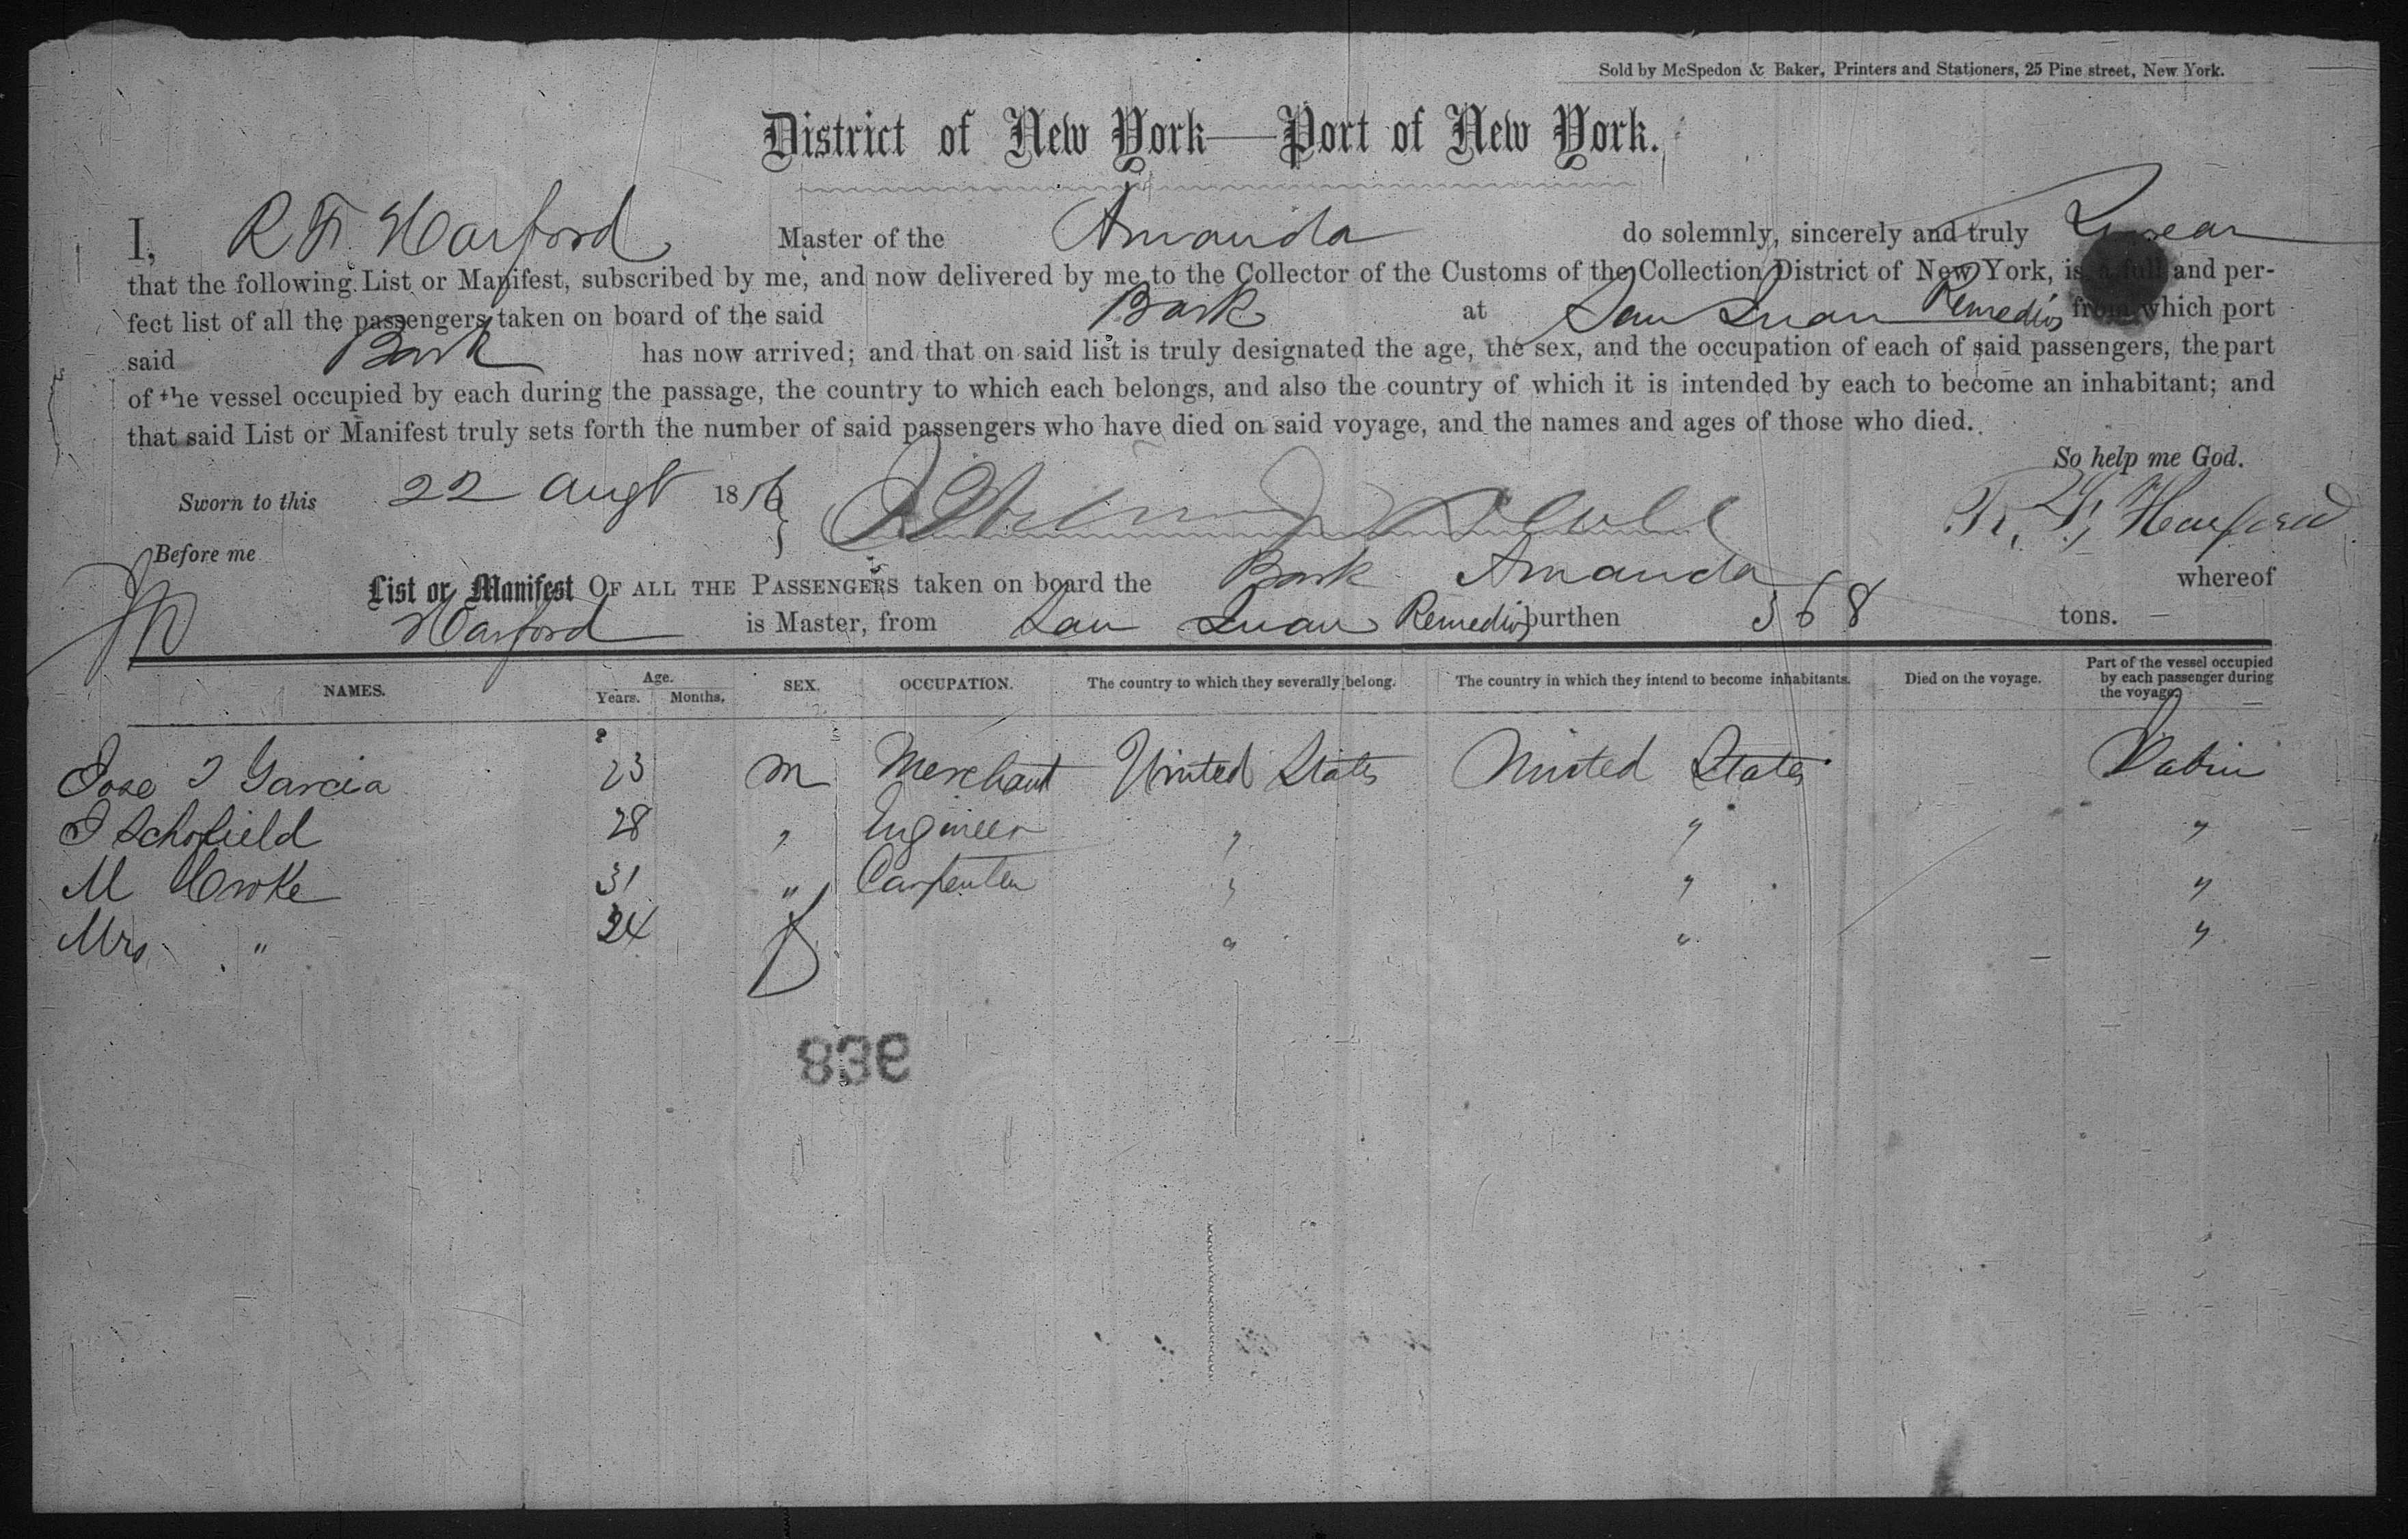 Sold by McSpedon & Baker, Printers and Stationers, 25 Pine street, New York.
District of New York—Port of New York.
I, R F Harford Master of the Amanda do solemnly, sincerely and truly Swear
that the following List or Manifest, subscribed by me, and now delivered by me to the Collector of the Customs of the Collection District of New York, is a full and per-
fect list of all the passengers taken on board of the said Bark at San Juan Remedios from which port
said Bark has now arrived; and that on said list is truly designated the age, the sex, and the occupation of each of said passengers, the part
of the vessel occupied by each during the passage, the country to which each belongs, and also the country of which it is intended by each to become an inhabitant; and
that said List or Manifest truly sets forth the number of said passengers who have died on said voyage, and the names and ages of those who died.
So help me God.
Sworn to this 22 Augt 1856 R. F. Harford
Before me
List or Manifest OF ALL THE PASSENGERS taken on board the Bark Amanda whereof
Harford is Master, from San Juan Remedios burthen 368 tons.
NAMES. Age. Years. Months. SEX. OCCUPATION. The country to which they severally belong. The country in which they intend to become inhabitants. Died on the voyage. Part of the vessel occupied by each passenger during the voyage.
Jose I Garcia 23 m Merchant United States United States Cabin
J Schofield 28 " Engineer " " "
M Croke 31 " Carpenter " " "
Mrs " 24 f " " "
836